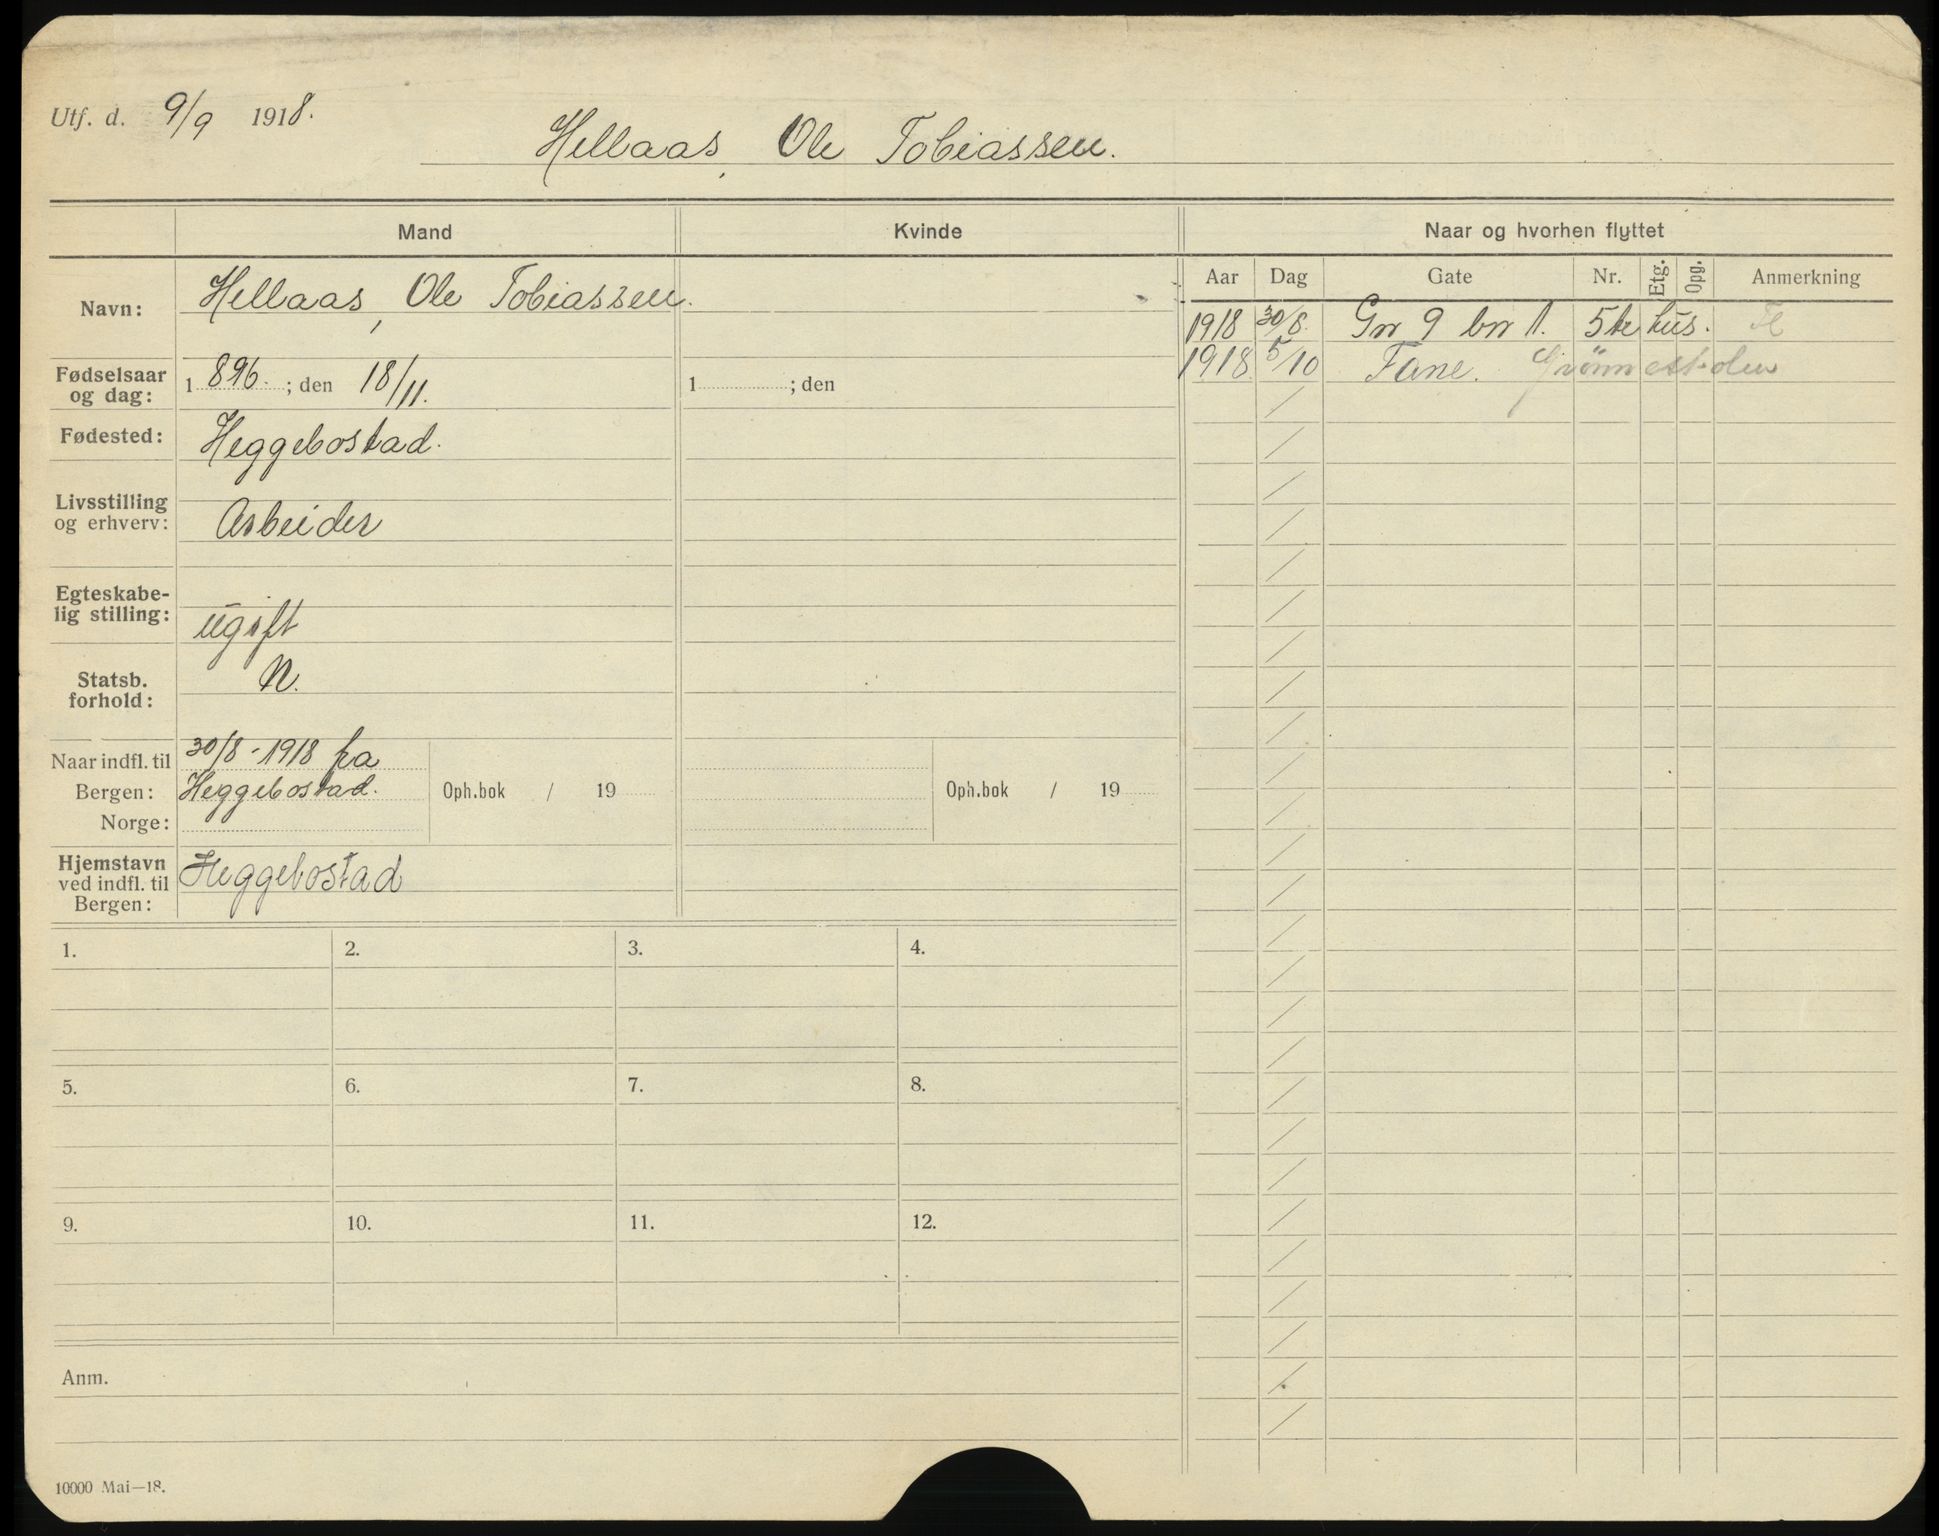 Utf. d. 9/9 1918.
Hellaas, Ole Tobiassen.
Mand Kvinde Naar og hvorhen flyttet
Aar Dag Gate Nr. Etg. Opg. Anmerkning
Navn: Hellaas, Ole Tobiassen.
1918 30/8. Gnr 9 bnr 1. 5te hus. Fl
1918 5/10 Fane.
Fødselsaar
og dag: 1896. ; den 18/11. 1 ; den
Fødested: Heggebostad.
Livsstilling
og erhverv: Arbeider
Egteskabe-
lig stilling: ugift
Statsb.
forhold: N.
Naar indfl. til 30/8 - 1918 fra
Bergen: Heggebostad. Oph.bok / 19 Oph.bok / 19
Norge:
Hjemstavn
ved indfl. til Heggebostad
Bergen:
1. 2. 3. 4.
5. 6. 7. 8.
9. 10. 11. 12.
Anm.
10000 Mai—18.